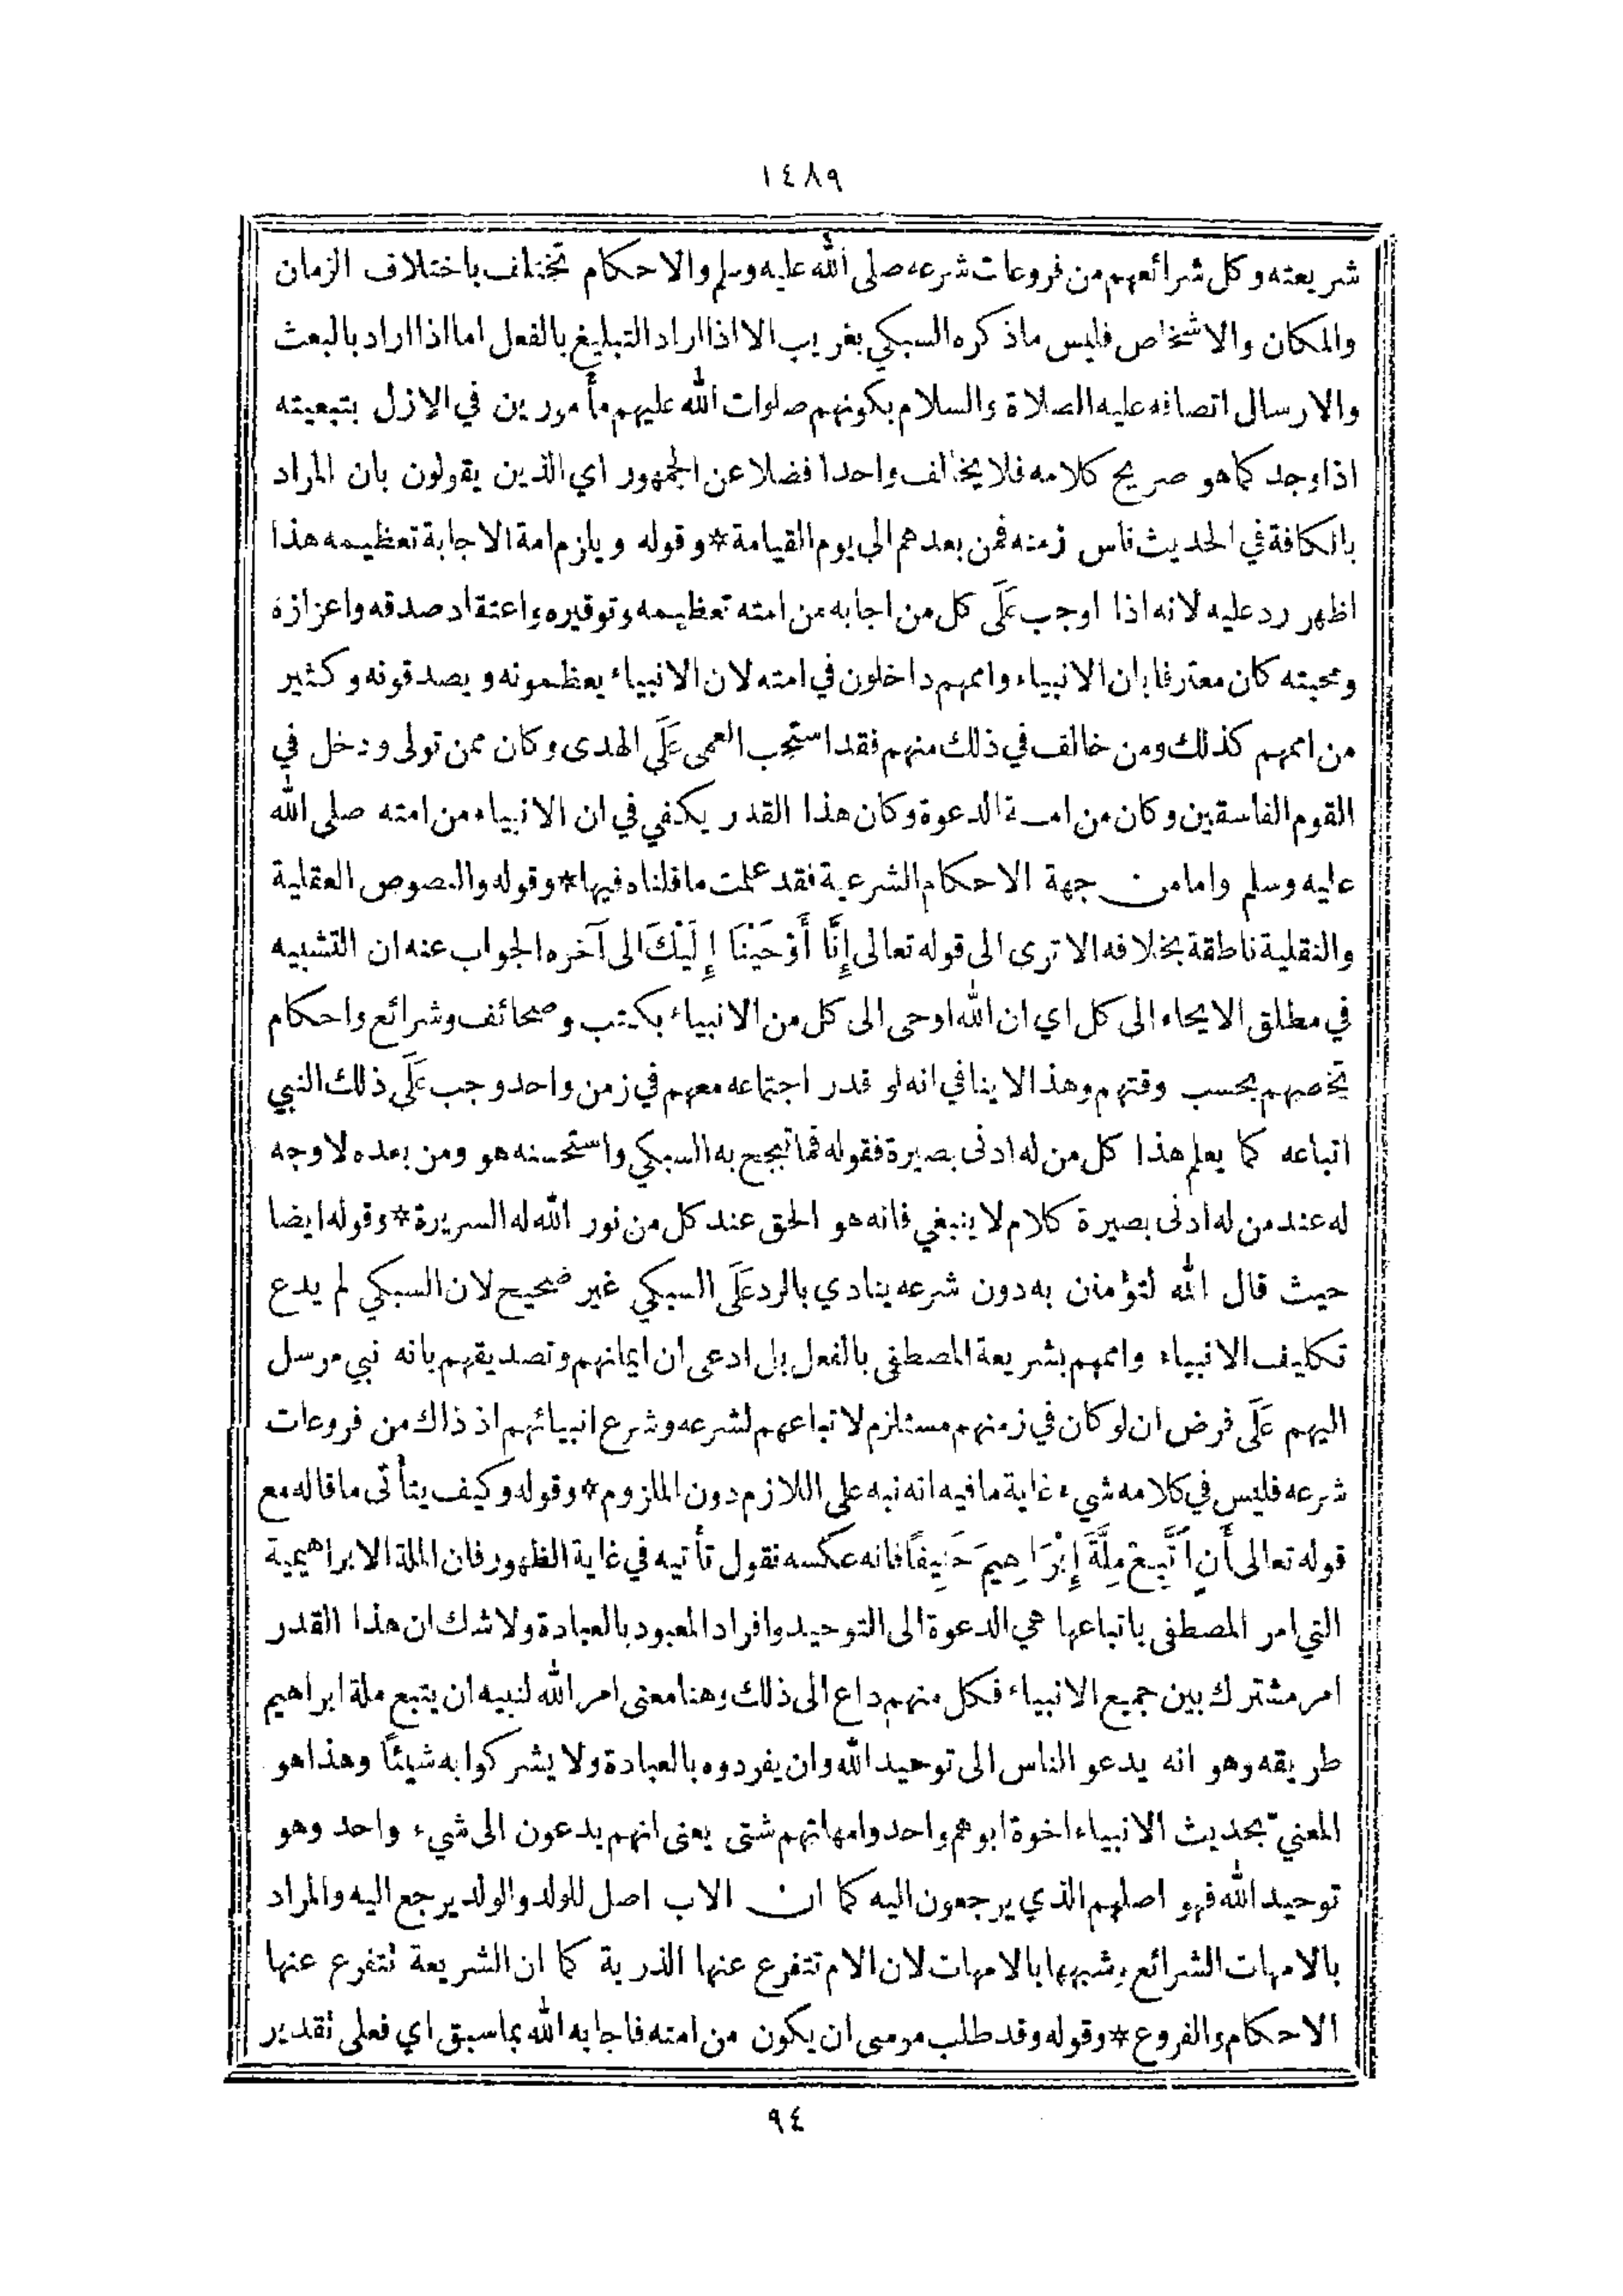 ١٤٨٩
شريعته وكل شرائعهم من فروعات شرعه صلى الله عليه وسلم والاحكام تختلف باختلاف الزمان
والمكان والاشخاص فليس ماذكره السبكي بغريب الا اذا اراد التبليغ بالفعل اما اذا اراد بالبعث
والارسال اتصافه عليه الصلاة والسلام بكونهم صلوات الله عليهم مأمورين في الازل بتبعيته
اذا وجد كما هو صريح كلامه فلا يخالف واحدا فضلا عن الجمهور اي الذين يقولون بان المراد
بالكافة في الحديث ناس زمنه فمن بعدهم الى يوم القيامة * وقوله ويلزم امة الاجابة تعظيمه هذا
اظهر رد عليه لانه اذا اوجب عَلَى كل من اجابه من امته تعظيمه وتوقيره واعتقاد صدقه واعزازه
ومحبته كان معترفا بان الانبياء واممهم داخلون في امته لان الانبياء يعظمونه ويصدقونه وكثير
من اممهم كذلك ومن خالف في ذلك منهم فقد استحب العمى عَلَى الهدى وكان ممن تولى ودخل في
القوم الفاسقين وكان من امة الدعوة وكان هذا القدر يكفي في ان الانبياء من امته صلى الله
عليه وسلم واما من جهة الاحكام الشرعية فقد علمت ما قلناه فيها * وقوله والنصوص العقلية
والنقلية ناطقة بخلافه الا ترى الى قوله تعالى إِنَّا أَوْحَيْنَا إِلَيْكَ الى آخره الجواب عنه ان التشبيه
في مطلق الايحاء الى كل اي ان الله اوحى الى كل من الانبياء بكتب وصحائف وشرائع واحكام
تخصهم بحسب وقتهم وهذا لا ينافي انه لو قدر اجتماعه معهم في زمن واحد وجب عَلَى ذلك النبي
اتباعه كما يعلم هذا كل من له ادنى بصيرة فقوله فما تبجح به السبكي واستحسنه هو ومن بعده لا وجه
له عند من له ادنى بصيرة كلام لا ينبغي فانه هو الحق عند كل من نور الله له السريرة * وقوله ايضا
حيث قال الله لتؤمنن به دون شرعه ينادي بالرد عَلَى السبكي غير صحيح لان السبكي لم يدع
تكليف الانبياء واممهم بشريعة المصطفى بالفعل بل ادعى ان ايمانهم وتصديقهم بانه نبي مرسل
اليهم عَلَى فرض ان لو كان في زمنهم مستلزم لاتباعهم لشرعه وشرع انبيائهم اذ ذاك من فروعات
شرعه فليس في كلامه شيء غاية ما فيه انه نبه على اللازم دون الملزوم * وقوله وكيف يتأتى ما قاله مع
قوله تعالى أَنِ اتَّبِعْ مِلَّةَ إِبْرَاهِيمَ حَنِيفًا فانه عكسه نقول تأتيه في غاية الظهور فان الملة الابراهيمية
التي امر المصطفى باتباعها هي الدعوة الى التوحيد وافراد المعبود بالعبادة ولا شك ان هذا القدر
امر مشترك بين جميع الانبياء فكل منهم داع الى ذلك وهنا معنى امر الله لنبيه ان يتبع ملة ابراهيم
طريقه وهو انه يدعو الناس الى توحيد الله وان يفردوه بالعبادة ولا يشركوا به شيئًا وهذا هو
المعنيّ بحديث الانبياء اخوة ابوهم واحد وامهاتهم شتى يعنى انهم يدعون الى شيء واحد وهو
توحيد الله فهو اصلهم الذي يرجعون اليه كما ان الاب اصل للولد والولد يرجع اليه والمراد
بالامهات الشرائع وشبهها بالامهات لان الام تتفرع عنها الذرية كما ان الشريعة تتفرع عنها
الاحكام والفروع * وقوله وقد طلب موسى ان يكون من امته فاجابه الله بما سبق اي فعلى تقدير
٩٤